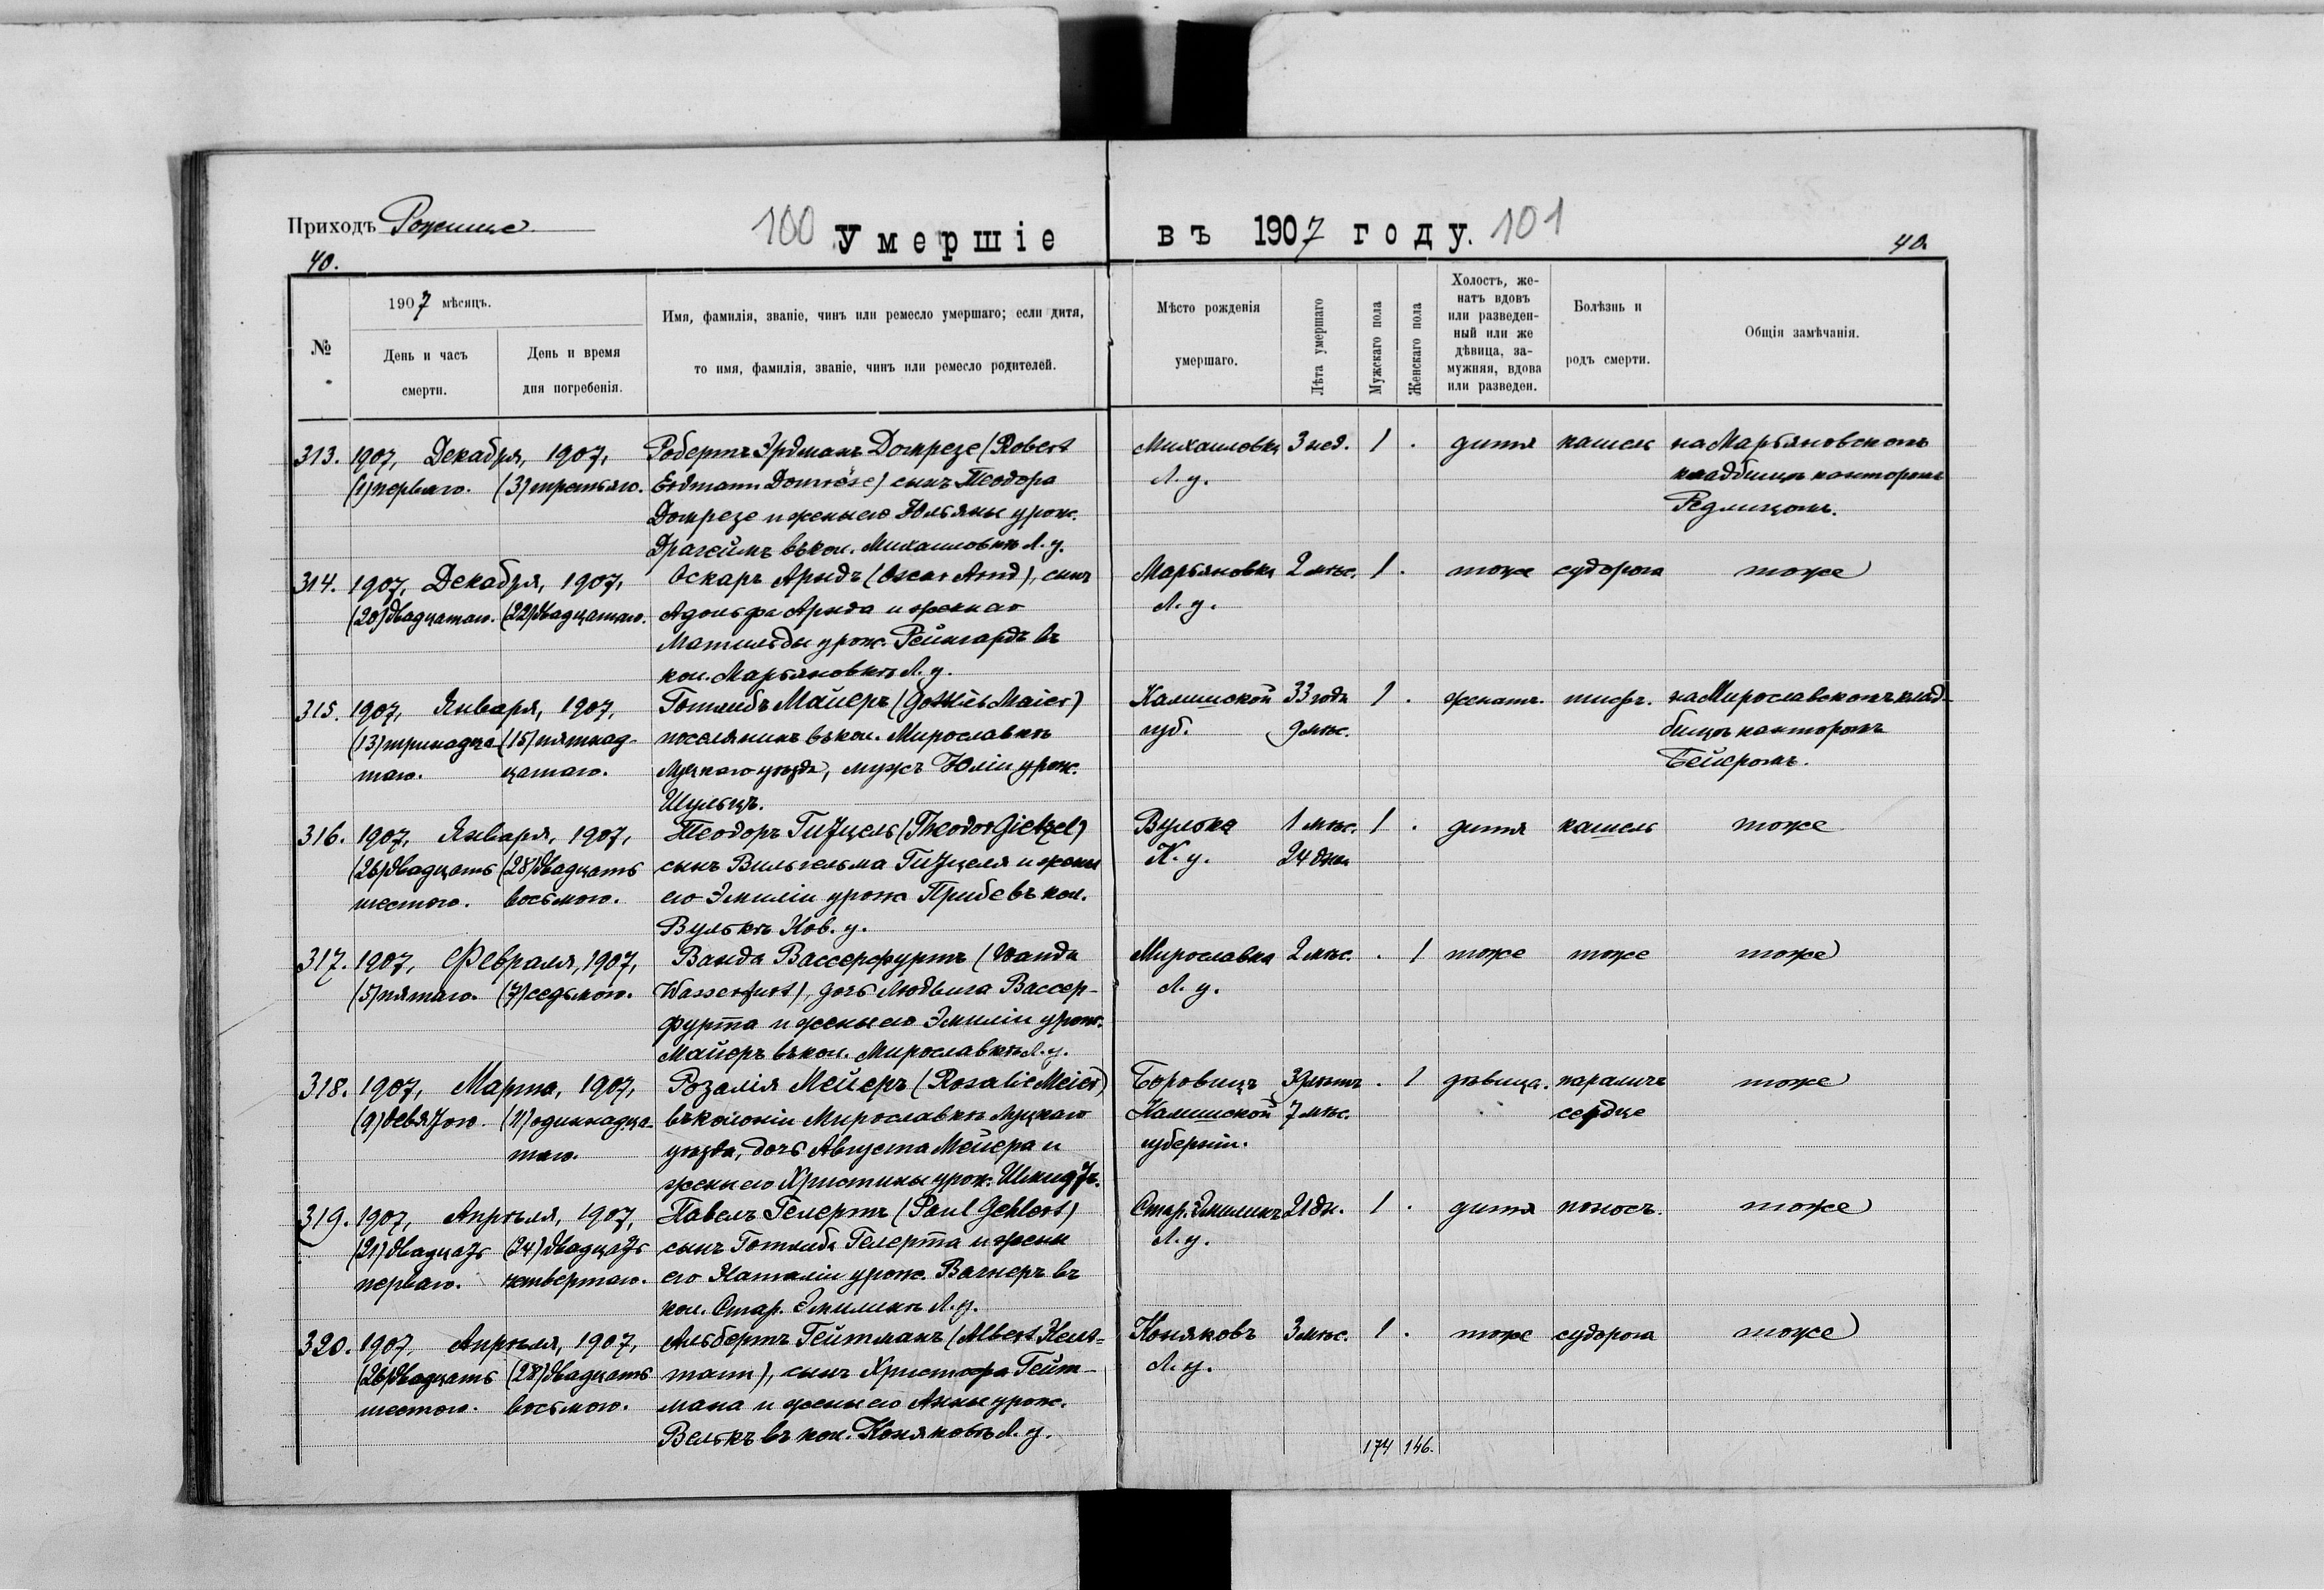 Приходъ Рожище
100 Умершіе въ 1907 году. 101
40. 40.
№
1907 мѣсяцъ.
День и часъ смерти.
День и время дня погребенія.
Имя, фамилія, званіе, чинъ или ремесло умершаго; если дитя,
то имя, фамилія, званіе, чинъ или ремесло родителей.
Мѣсто рожденія умершаго.
Лѣта умершаго
Мужскаго пола
Женскаго пола
Холостъ, же-
натъ вдовъ
или разведен-
ный или же
дѣвица, за-
мужняя, вдова
или разведен.
Болѣзнь и родъ смерти.
Общія замѣчанія.
313. 1907, Декабря, 1907, Робертъ Эрдманъ Домрезе (Robert Михаиловка 3 нед. 1 . дитя кашель на Марьяновскомъ
(1) перваго. (3) третьяго. Erdmann Domröse) сынъ Теодора Л. у. кладбищѣ канторомъ
Домрезе и жены его Юльяны урож. Редлицомъ.
Драгеймъ въ кол. Михаиловкѣ Л. у.
314. 1907, Декабря, 1907, Оскаръ Арндъ (Oscar Arnd), сынъ Марьяновка 2 мѣс. 1 . тоже судорога тоже
(20) двадцатаго. (22) двадцатаго. Адольфа Арнда и жены его Л. у.
Матильды урож. Рейнгардъ въ
кол. Марьяновкѣ Л. у.
315. 1907, Января, 1907, Готлибъ Майеръ (Gottlieb Maier) Калишской 33 года 1 . женатъ. тифъ. на Мирославскомъ клад-
(13) тринадца- (15) пятнад- поселянинъ въ кол. Мирославкѣ губ. 9 мѣс. бищѣ канторомъ
таго. цатаго. Луцкаго уѣзда, мужъ Юліи урож. Бейеромъ.
Шульцъ.
316. 1907, Января, 1907, Теодоръ Гитцель (Theodor Gietzel) Вулька 1 мѣс. 1 . дитя кашель тоже
(26) двадцать (28) двадцать сынъ Вильгельма Гитцеля и жены К. у. 24 дня
шестого. восьмого. его Эмиліи урож Прибе въ кол.
Вулькѣ Ков. у.
317. 1907, Февраля, 1907, Ванда Вассерфуртъ (Wanda Мирославка 2 мѣс. . 1 тоже тоже тоже
(5) пятаго. (7) седьмого. Wasserfurt), дочь Людвига Вассер- Л. у.
фурта и жены его Эмиліи урож.
Майеръ въ кол. Мирославкѣ Л. у.
318. 1907, Марта, 1907, Розалія Мейеръ (Rosalie Meier) Боровицъ 39 лѣтъ . 1 дѣвица. параличъ тоже
(9) девятого (11) одиннадца- въ колоніи Мирославкѣ Луцкаго Калишской 7 мѣс. сердце
таго. уѣзда, дочь Августа Мейера и губерніи.
жены его Христины урож. Шмидтъ.
319. 1907, Апрѣля, 1907, Павелъ Гелертъ (Paul Gehlert) Стар. Эмилинъ 21 дн. 1 . дитя поносъ. тоже
(21) двадцать (24) двадцать сынъ Готлиба Гелерта и жены Л. у.
перваго. четвертаго. его Наталіи урож. Вагнеръ въ
кол. Стар. Эмилинѣ Л. у.
320. 1907, Апрѣля, 1907, Альбертъ Гейтманъ (Albert Heit- Коняковъ 3 мѣс. 1 . тоже судорога тоже
(26) двадцать (28) двадцать mann), сынъ Христофа Гейт- Л. у.
шестого. восьмого. мана и жены его Анны урож.
Велькъ въ кол. Коняковѣ Л. у.
174 146.